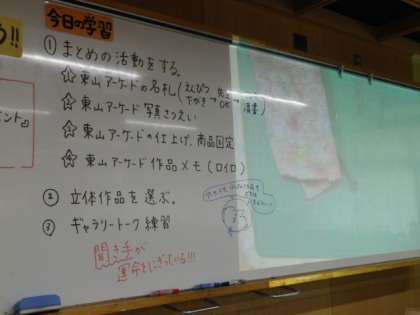 今日の学習
① まとめの活動をする。
☆ 東山アーケードの名札(えんぴつ 下がき→ 先生 OK → 清書)
☆ 東山アーケード 写真さつえい
☆ 東山アーケードの仕上げ、商品固定
☆ 東山アーケード 作品メモ(ロイロ)
② 立体作品を選ぶ。
③ ギャラリートーク練習
聞き手が
運命をにぎっている!!!